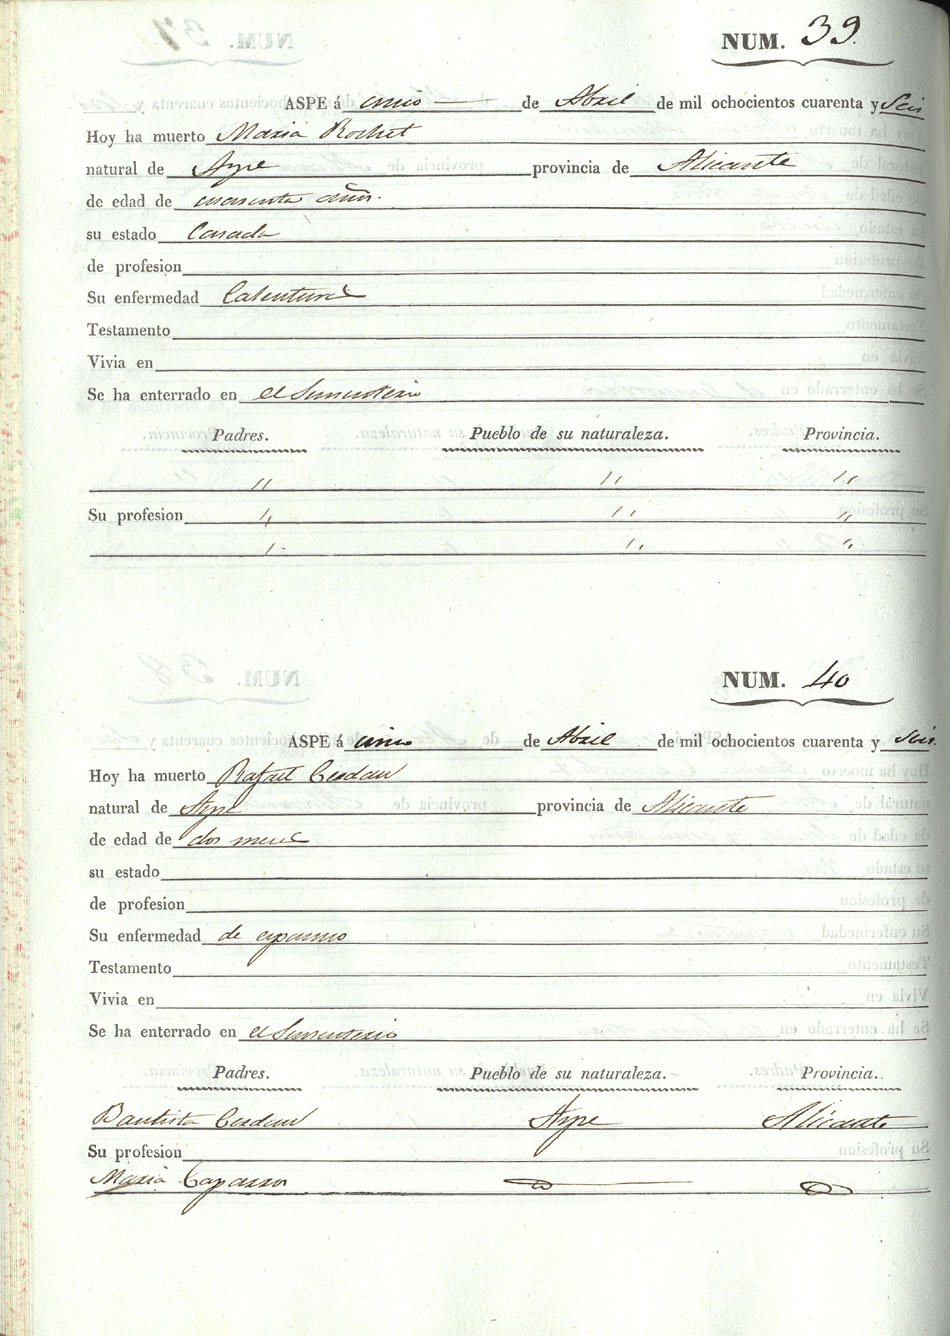 NUM. 39
ASPE á cinco de Abril de mil ochocientos cuarenta y Seis
Hoy ha muerto Maria Rochet
natural de Aspe provincia de Alicante
de edad de cuarenta años.
su estado Casada
de profesion
Su enfermedad Calentura
Testamento
Vivia en
Se ha enterrado en el Sementerio
Padres. Pueblo de su naturaleza. Provincia.
" " "
Su profesion " " "
" " "
NUM. 40
ASPE á cinco de Abril de mil ochocientos cuarenta y Seis.
Hoy ha muerto Rafael Cerdan
natural de Aspe provincia de Alicante
de edad de dos meses
su estado
de profesion
Su enfermedad de espasmo
Testamento
Vivia en
Se ha enterrado en el Sementerio
Padres. Pueblo de su naturaleza. Provincia.
Bautista Cerdan Aspe Alicante
Su profesion
Maria Caparros